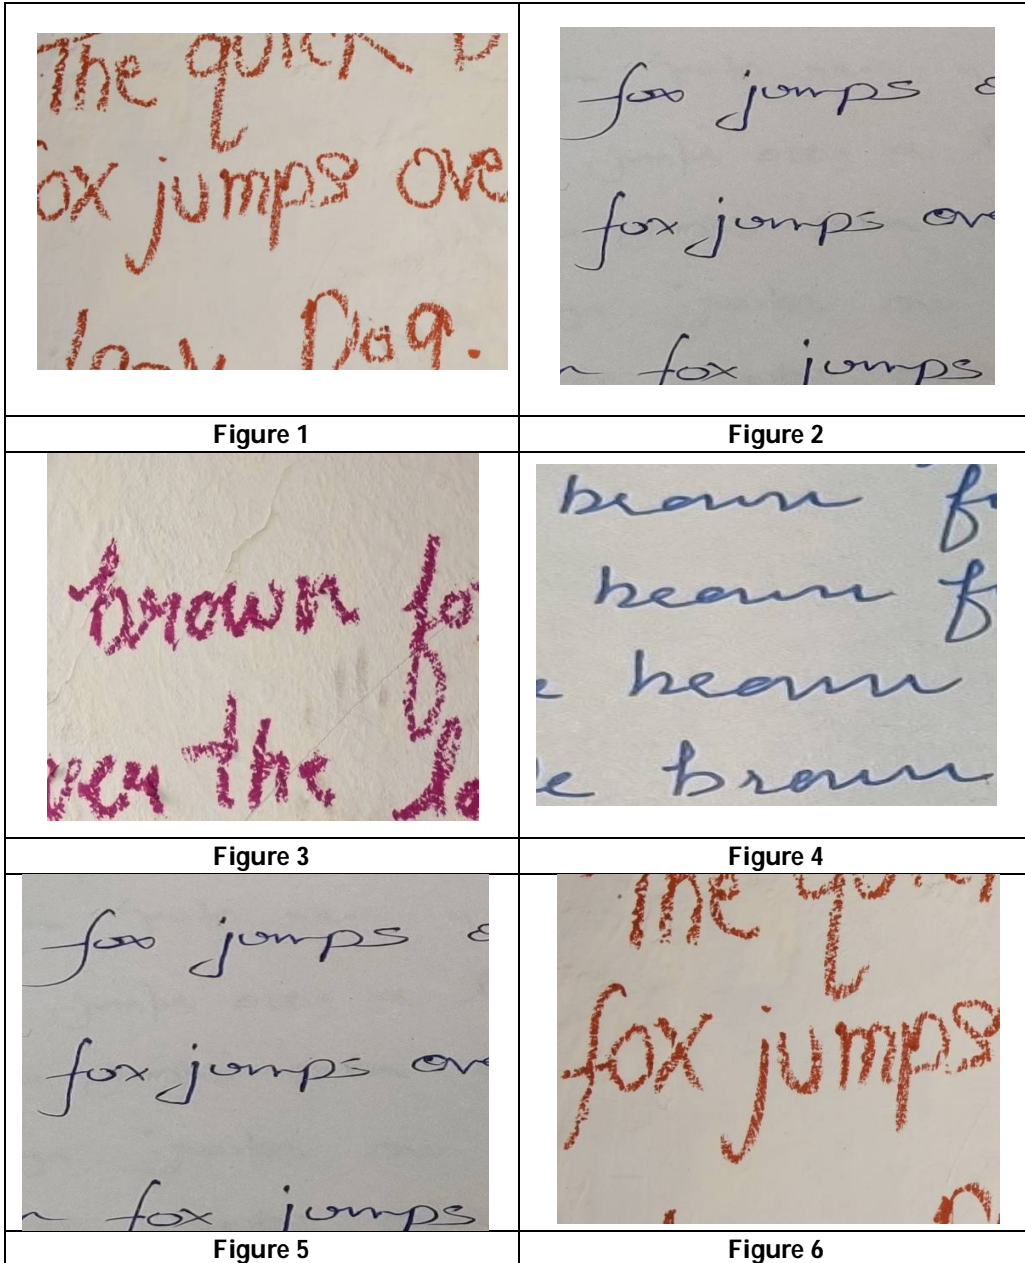 The quick b
ox jumps ove
Dog.
fox jumps
fox jumps ov
fox jumps
Figure 1
Figure 2
brown fo
ver the la
brown f
brown f
brown
e brown
Figure 3
Figure 4
fox jumps
fox jumps ov
fox jumps
The quick
fox jumps
Figure 5
Figure 6